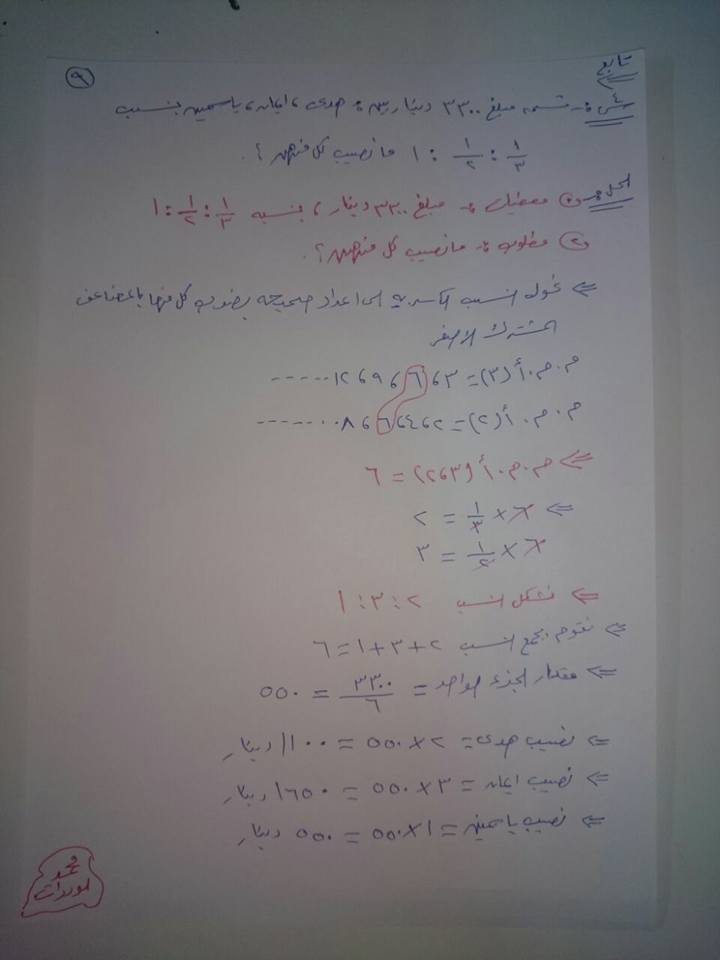 تابع
٩
س٤ :- قسم مبلغ ٣٣٠٠ دينار بين : هدى ، ايمان ، ياسمين بنسب
١/٣ : ١/٢ : ١ ما نصيب كل منهن ؟
الحل :- ① معطيات :- مبلغ ٣٣٠٠ دينار ، بنسبة ١/٣ : ١/٢ : ١
② مطلوب :- ما نصيب كل منهن ؟
⇐ نحول النسب الكسرية الى اعداد صحيحه بضرب كل منها بالمضاعف
المشترك الاصغر
م.م.أ (٣) = ٣ ، ٦ ، ٩ ، ١٢ ------
م.م.أ (٢) = ٢ ، ٤ ، ٦ ، ٨ ------
⇐ م.م.أ (٣ ، ٢) = ٦
⇐ ٦ × ١/٣ = ٢
٦ × ١/٢ = ٣
⇐ تشكل النسب ٢ : ٣ : ١
⇐ نقوم بجمع النسب ٢ + ٣ + ١ = ٦
⇐ مقدار الجزء الواحد = ٣٣٠٠/٦ = ٥٥٠
⇐ نصيب هدى = ٢ × ٥٥٠ = ١١٠٠ دينار
⇐ نصيب ايمان = ٣ × ٥٥٠ = ١٦٥٠ دينار
⇐ نصيب ياسمين = ١ × ٥٥٠ = ٥٥٠ دينار
محمد